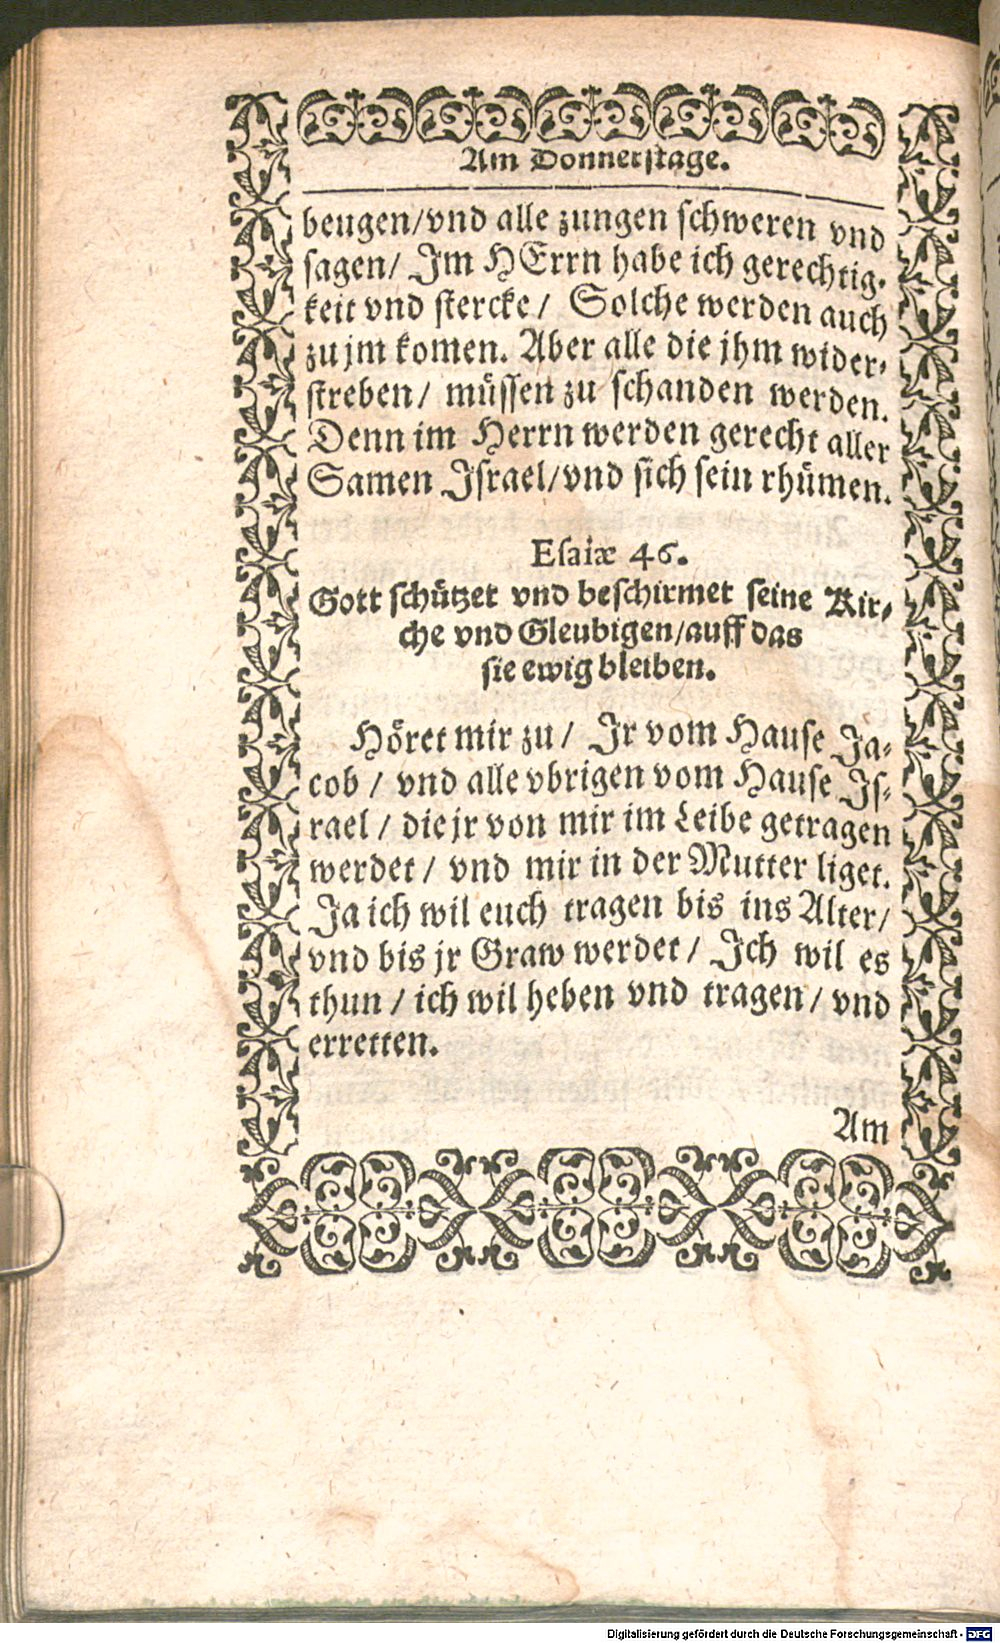 Am Donnerstage.
beugen/vnd alle zungen schweren vnd
sagen/ Im HErrn habe ich gerechtig-
keit vnd stercke/ Solche werden auch
zu jm komen. Aber alle die jhm wider-
streben/ müssen zu schanden werden.
Denn im Herrn werden gerecht aller
Samen Israel/vnd sich sein rhümen.
Esaiæ 46.
Gott schützet vnd beschirmet seine Kir-
che vnd Gleubigen/auff das
sie ewig bleiben.
Höret mir zu/ Ir vom Hause Ja-
cob/ vnd alle vbrigen vom Hause Is-
rael/ die jr von mir im Leibe getragen
werdet/ vnd mir in der Mutter liget.
Ja ich wil euch tragen bis ins Alter/
vnd bis jr Graw werdet/ Ich wil es
thun/ ich wil heben vnd tragen/ vnd
erretten.
Am
Digitalisierung gefördert durch die Deutsche Forschungsgemeinschaft - DFG